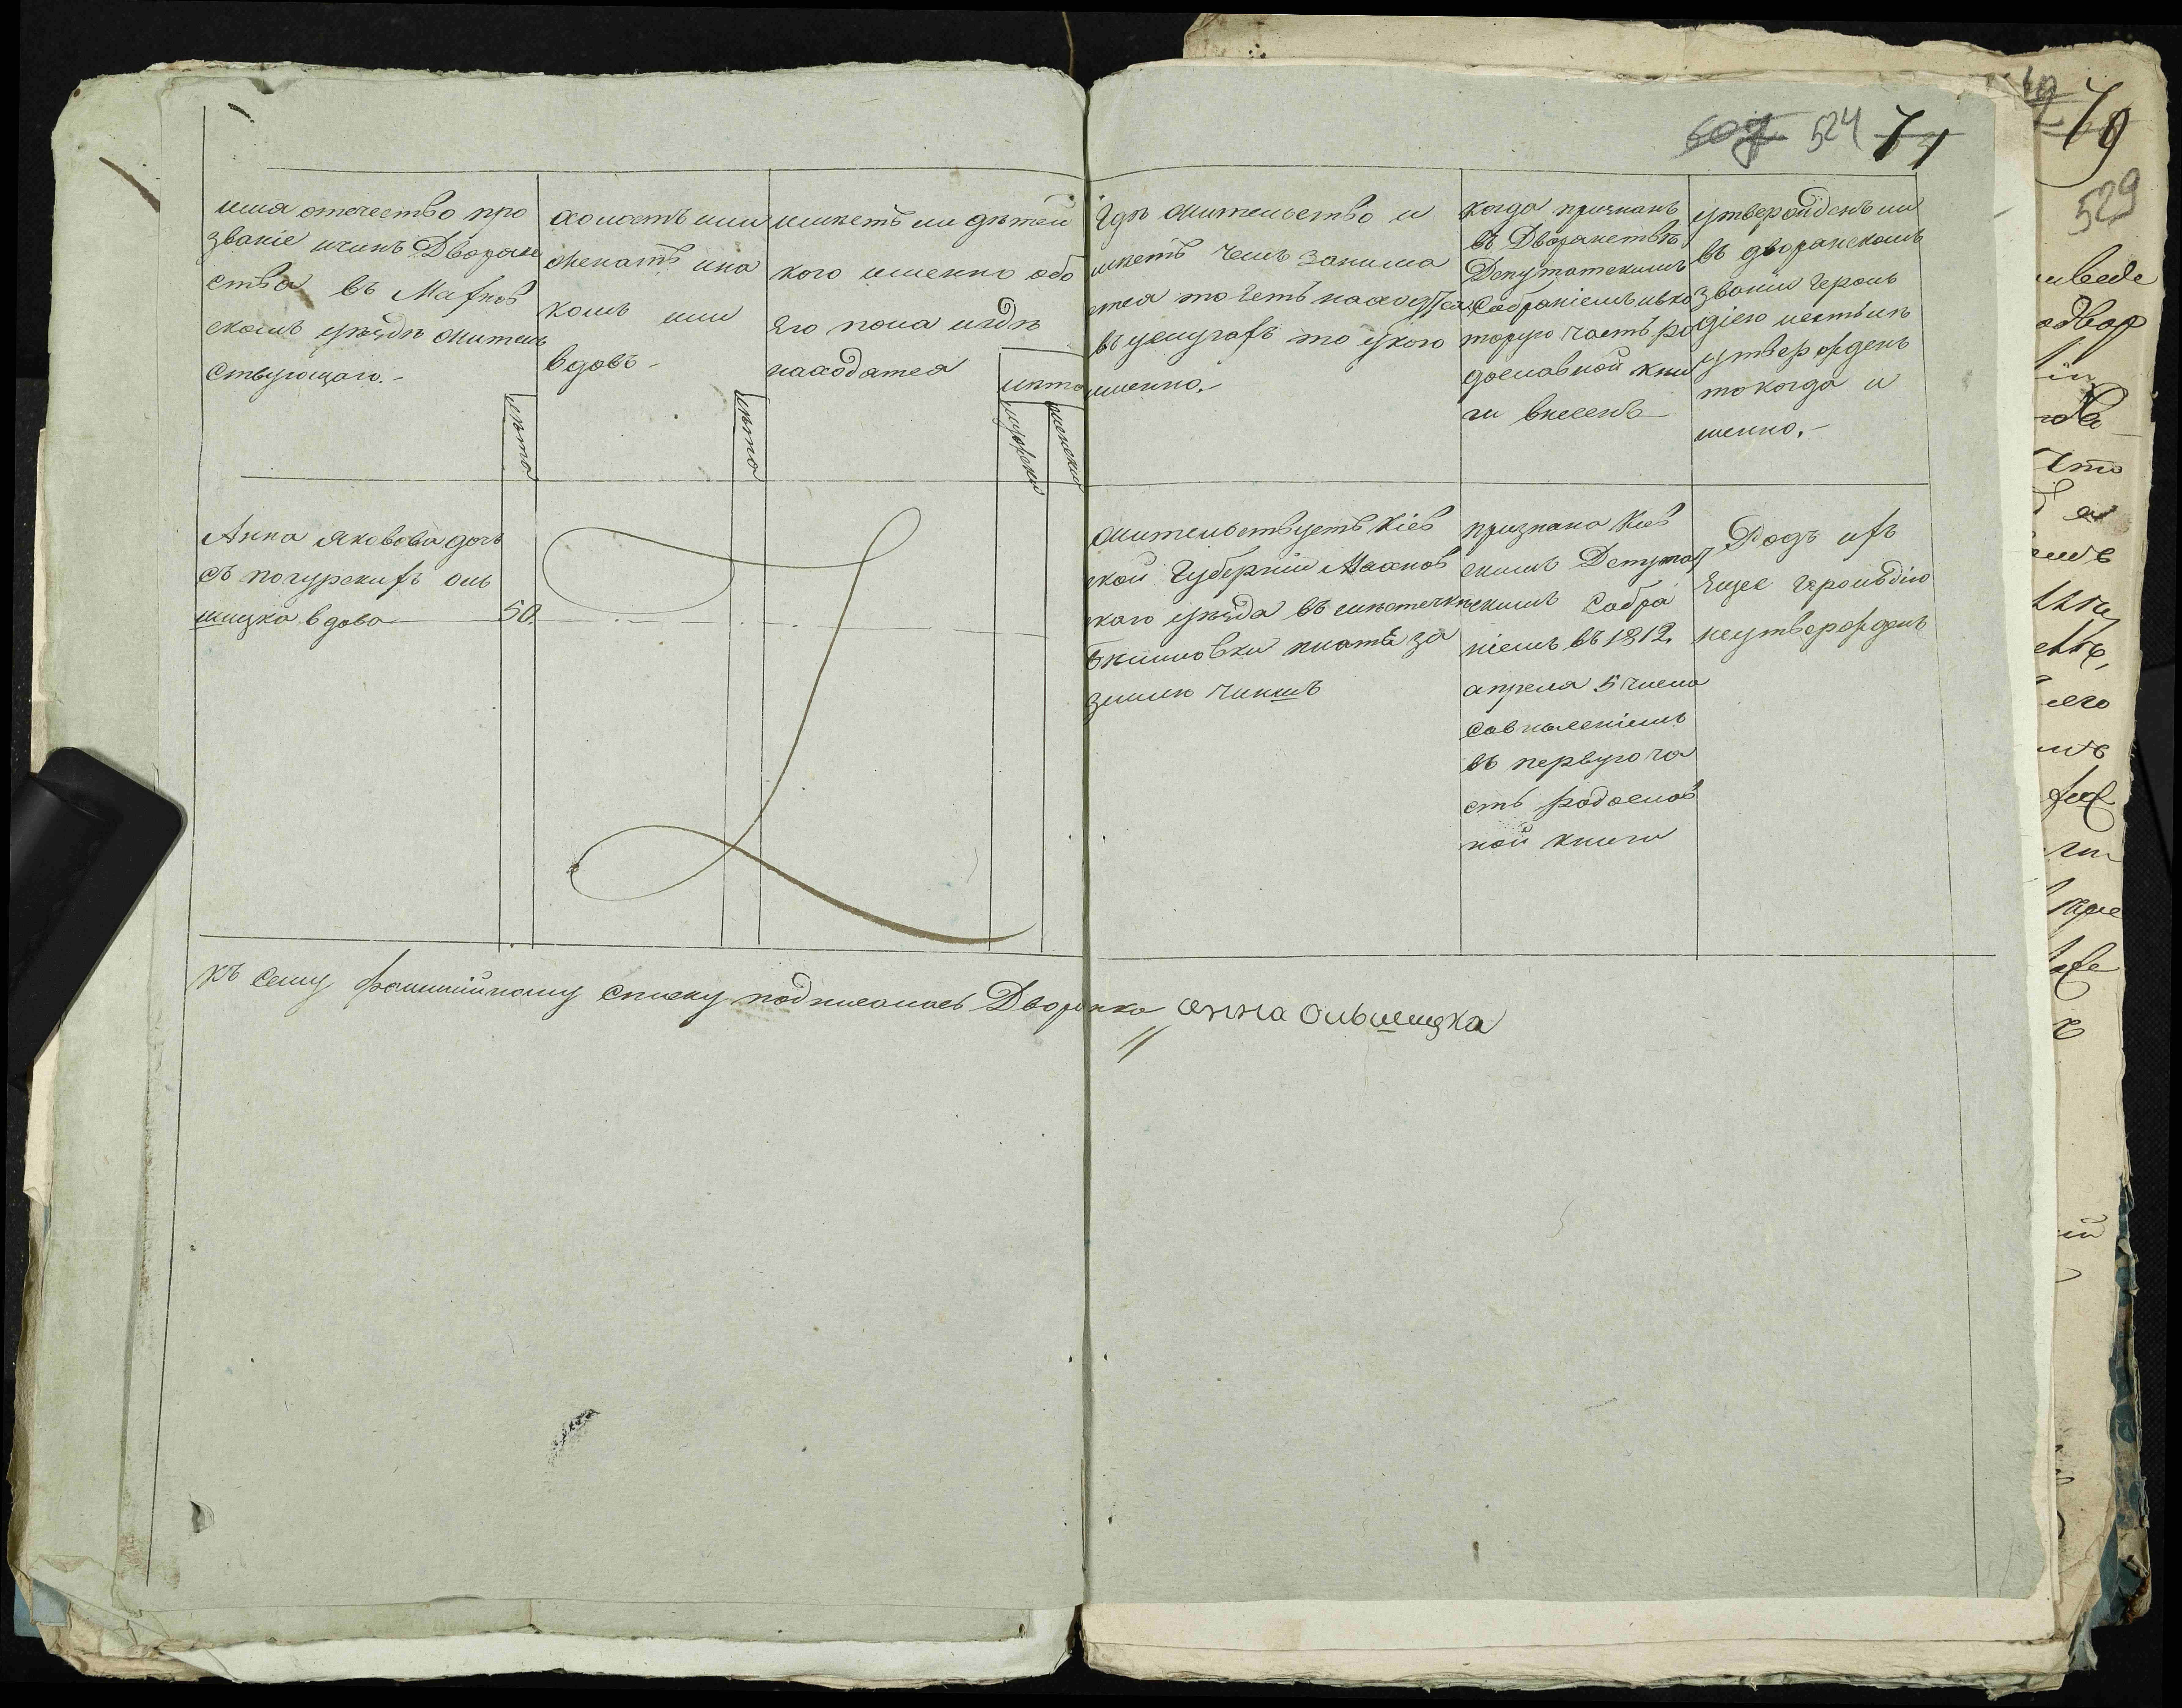 607 524 71
имя отечество про
званіе ичинъ Дворян
ства въ Махнов
скомъ уѣздѣ жытель
ствующаго.-
лѣта
холостъ или
женатъ ина
комъ или
вдовъ -
лѣта
имѣетъ ли дѣтей
кого именно обо
его пола игдѣ
находятся
лѣта
мужеска
женска
Гдѣ жительство и
имѣетъ чемъ занима
ется то есть находится
въ услугахъ то укого
именно.-
когда признанъ
въ Дворянствѣ
Депутатскимъ
Собраніемъ ивко
торую часть ро
дословной кни
ги внесенъ
утвержденъ ли
въ дворянскомъ
званіи Героль
діею иестьли
утвержденъ
то когда и
менно.-
Анна Яковова дочь
съ погурскихъ оль
шицка вдова 50.
жительствуетъ Кіев
ской Губерніи Махнов
скаго уѣзда въ мѣстечкѣ
платѣ за
землю чиншъ
признана Кіев
скимъ Депутат
скимъ Собра
ніемъ въ 1812
апреля 5 числа
въ первую ча
сть родослов
ной книги
Родъ ихъ
Ещее Герольдіею
неутвержденъ
къ сему фамилійному списку подписалась Дворянка анна Ольшицка
79
529